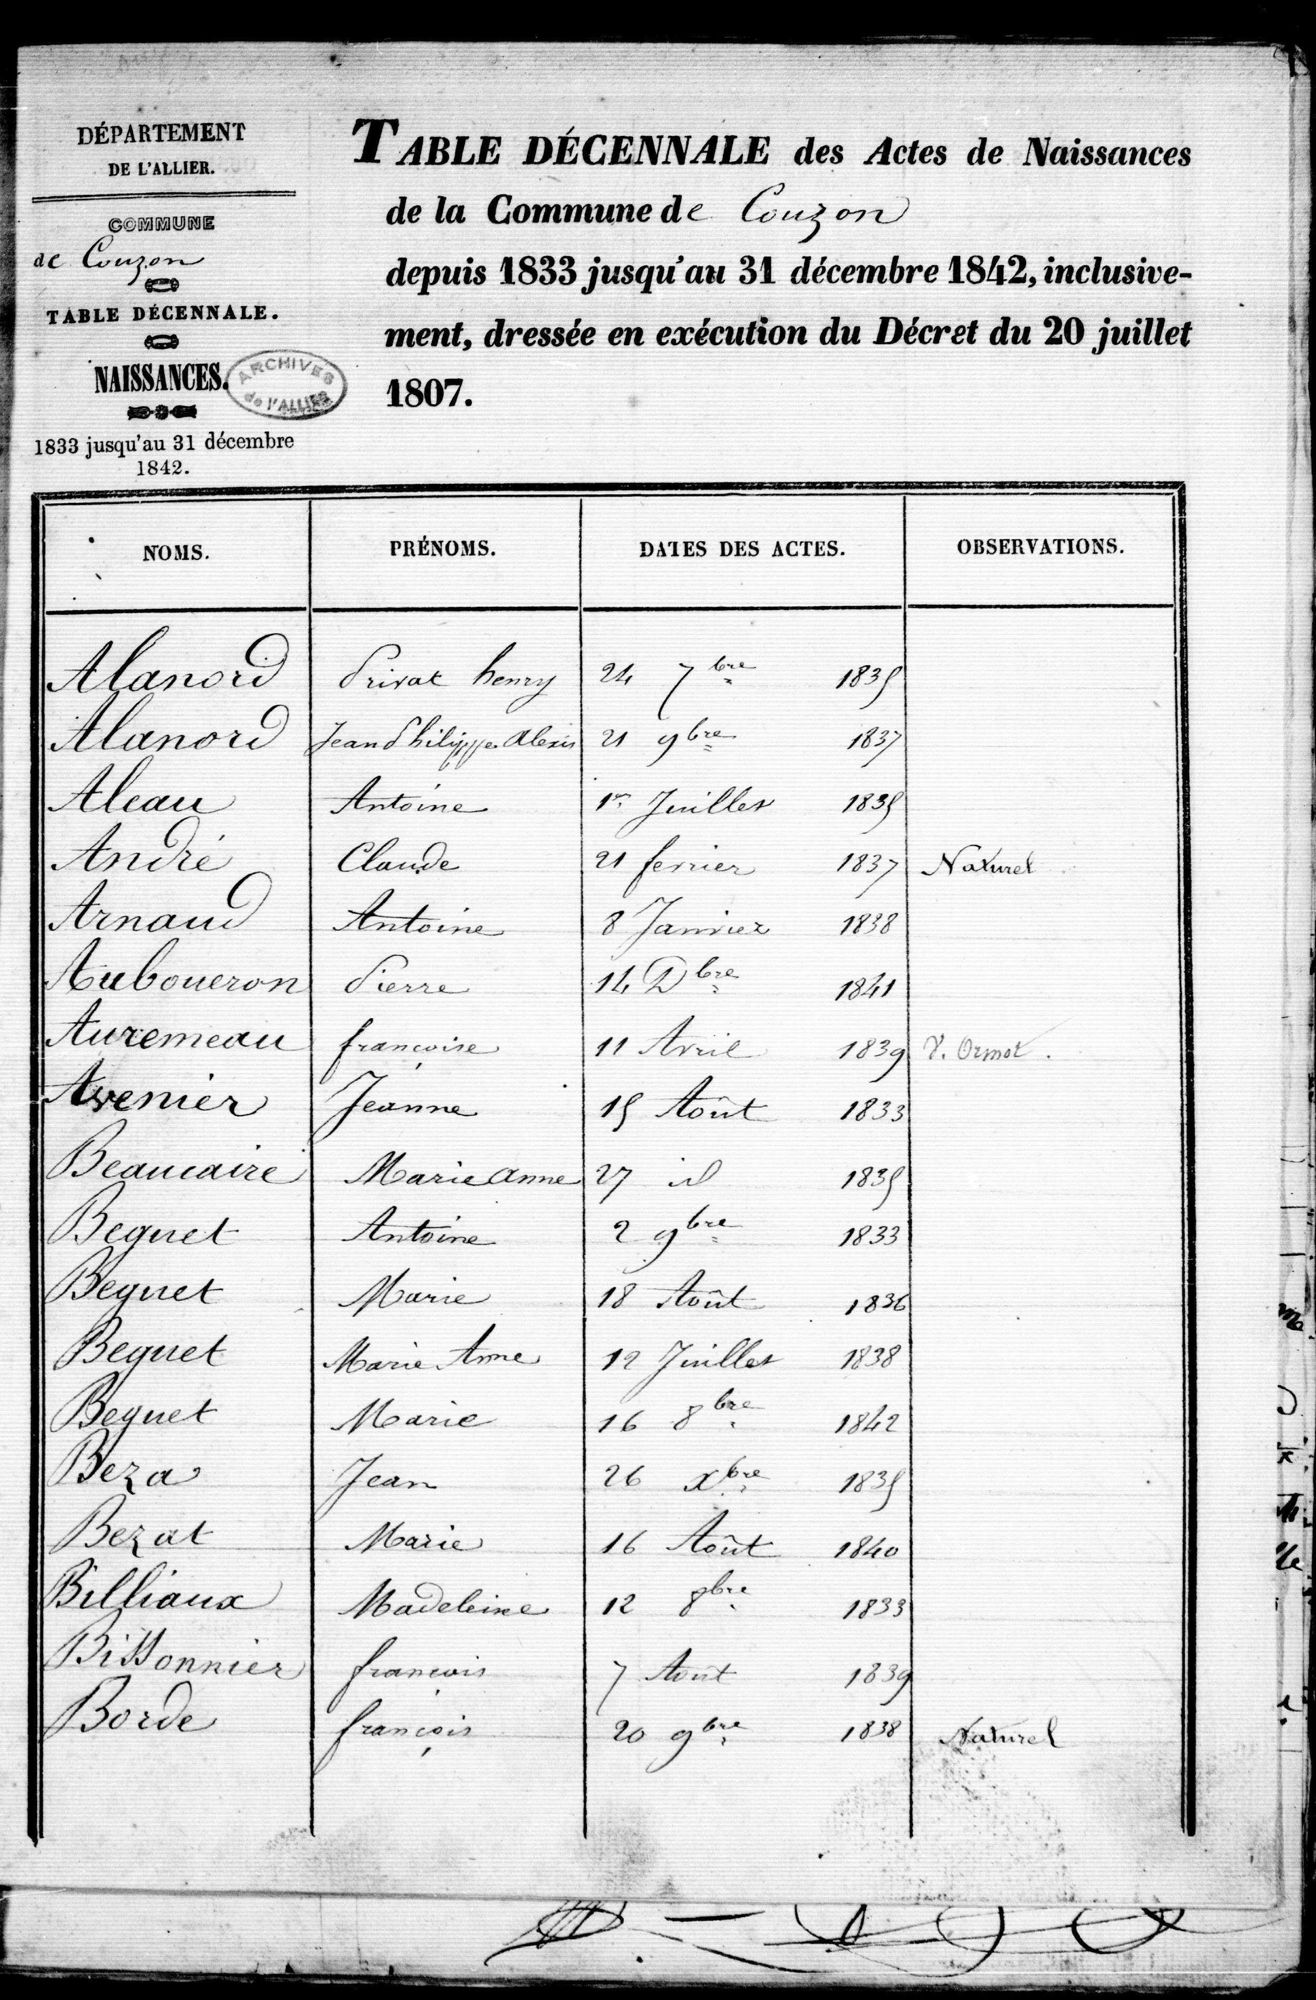 DÉPARTEMENT
DE L'ALLIER.
COMMUNE
de Couzon
TABLE DÉCENNALE.
NAISSANCES.
ARCHIVES
de l'ALLIER
1833 jusqu'au 31 décembre
1842.
TABLE DÉCENNALE des Actes de Naissances
de la Commune de Couzon
depuis 1833 jusqu'au 31 décembre 1842, inclusive-
ment, dressée en exécution du Décret du 20 juillet
1807.
NOMS. PRÉNOMS. DATES DES ACTES. OBSERVATIONS.
Alanord Privat henry 24 7bre 1835
Alanord Jean Philippe Alexis 21 9bre 1837
Aleau Antoine 1er Juillet 1835
André Claude 21 fevrier 1837 Naturel
Arnaud Antoine 8 Janvier 1838
Auboueron Pierre 14 Dbre 1841
Auremeau françoise 11 Avril 1839 V. Ormot.
Avenier Jeanne 15 Août 1833
Beaucaire Marie Anne 27 id 1835
Beguet Antoine 2 9bre 1833
Beguet Marie 18 Août 1836
Beguet Marie Anne 12 Juillet 1838
Beguet Marie 16 8bre 1842
Beza Jean 26 xbre 1835
Bezat Marie 16 Août 1840
Billiaux Madeleine 12 8bre 1833
Bissonnier francois 7 Août 1839
Borde françois 20 9bre 1838 Naturel